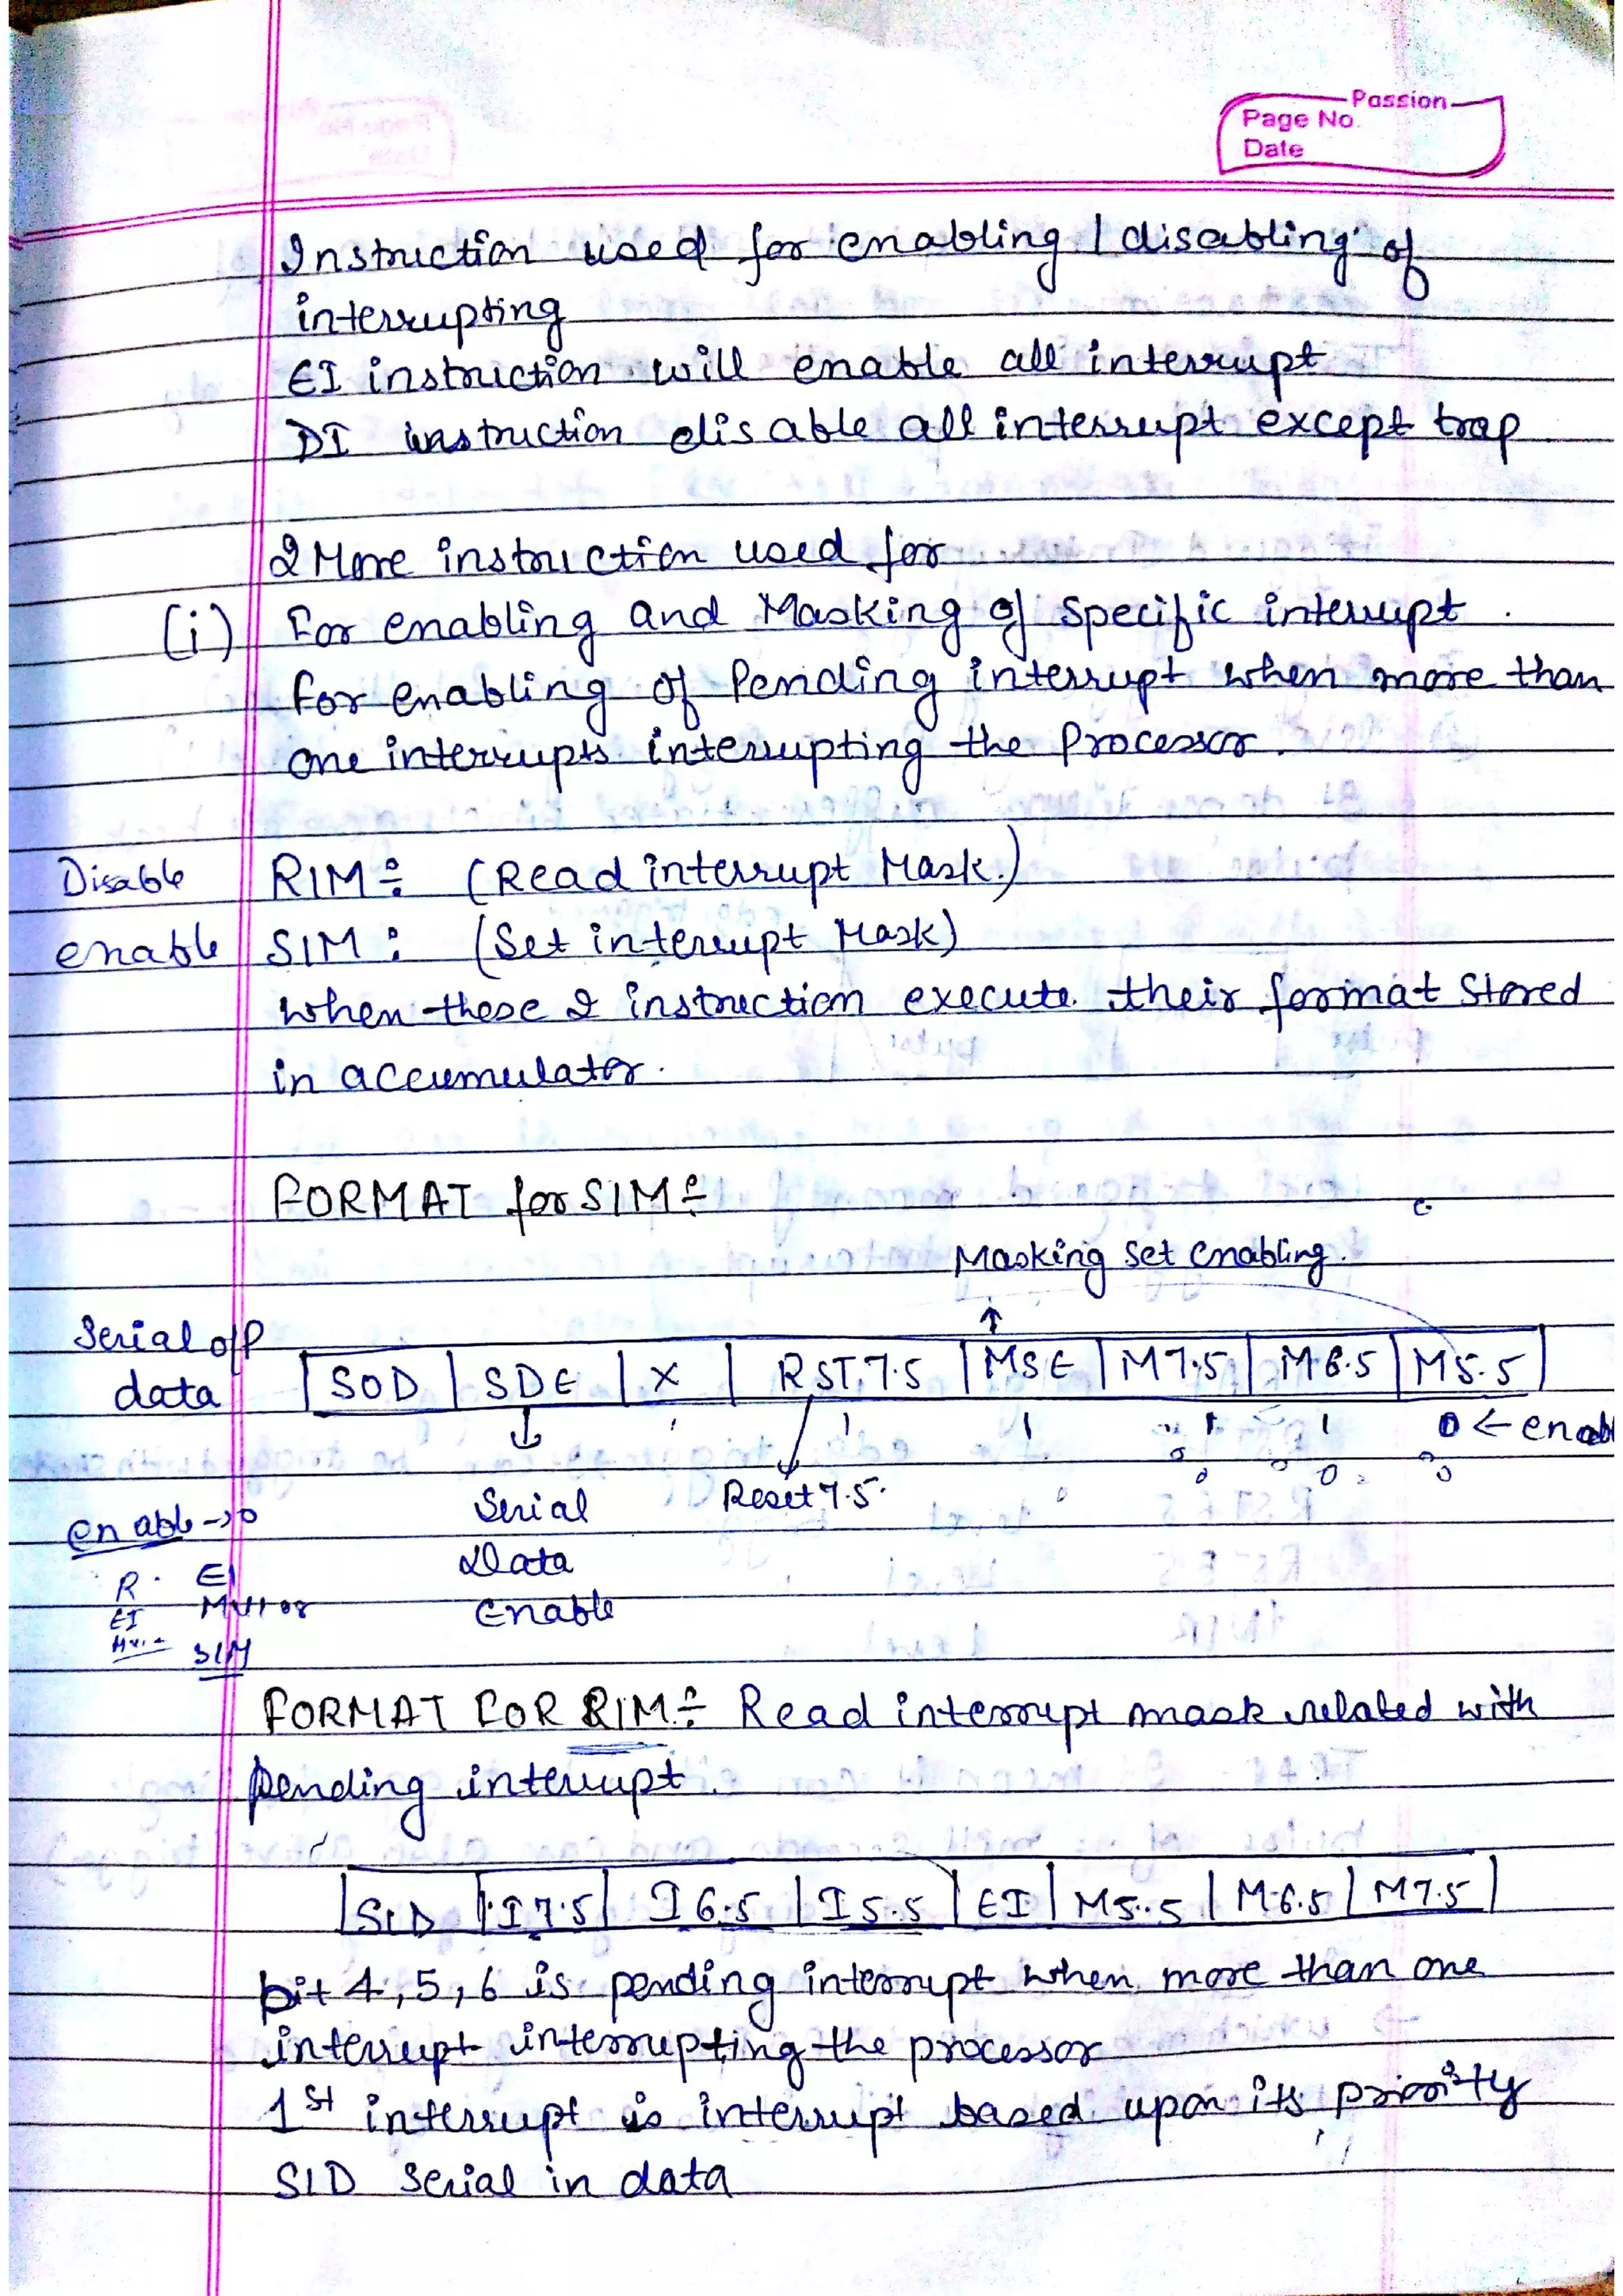 Passion
Page No.
Date
Instruction used for enabling / disabling of
interrupting
EI instruction will enable all interrupt
DI instruction disable all interrupt except trap
2 More instruction used for
(i) For enabling and Masking of specific interrupt.
for enabling of Pending interrupt when more than
one interrupts interrupting the Processor.
Disable RIM : (Read interrupt Mask.)
enable SIM : (Set interrupt Mask)
when these 2 instruction execute their format stored
in accumulator.
FORMAT for SIM :
Masking set enabling.
Serial o/p
data
SOD | SDE | X | RST.7.5 | MSE | M7.5 | M6.5 | M5.5
1 1 1 1 0 ← enab
0 0 0
Reset 7.5.
Serial
Data
Enable
enable → 0
R. EI
EI
SIM
FORMAT FOR RIM : Read interrupt mask related with
pending interrupt.
SID | I7.5 | I6.5 | I5.5 | EI | M5.5 | M6.5 | M7.5
bit 4, 5, 6 is pending interrupt when more than one
interrupt interrupting the processor
1st interrupt is interrupt based upon its priority
SID serial in data